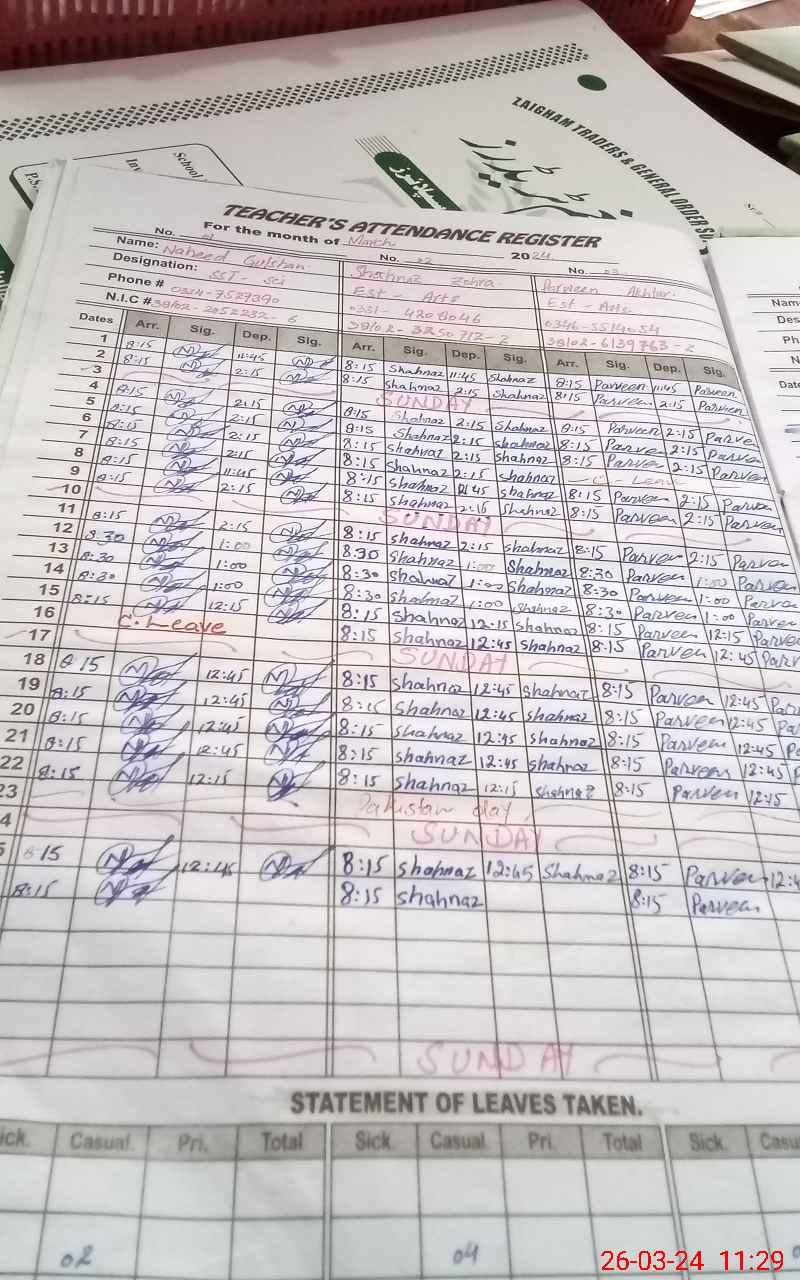 ZAIGHAM TRADERS & GENERAL ORDER SU
School
TEACHER'S ATTENDANCE REGISTER
For the month of March 2024
No. 01 No. 02 No. 03
Name: Naheed Gulshan Shahnaz Zohra Parveen Akhtar
Designation: SST - Sci Est - Arts Est - Arts
Phone # 0324-7527390 0331-4208046 0346-5514054
N.I.C # 38102-2052232-6 38102-3250712-2 38102-6139763-2
Dates Arr. Sig. Dep. Sig. Arr. Sig. Dep. Sig. Arr. Sig. Dep. Sig.
1 8:15 11:45 8:15 Shahnaz 11:45 Shahnaz 8:15 Parveen 11:45 Parveen
2 8:15 2:15 8:15 Shahnaz 2:15 Shahnaz 8:15 Parveen 2:15 Parveen
3 SUNDAY
4 8:15 2:15 8:15 Shahnaz 2:15 Shahnaz 8:15 Parveen 2:15 Parveen
5 8:15 2:15 8:15 Shahnaz 2:15 Shahnaz 8:15 Parveen 2:15 Parveen
6 8:15 2:15 8:15 Shahnaz 2:15 Shahnaz 8:15 Parveen 2:15 Parveen
7 8:15 2:15 8:15 Shahnaz 2:15 Shahnaz C. Leave
8 8:15 11:45 8:15 Shahnaz 11:45 Shahnaz 8:15 Parveen 2:15 Parveen
9 8:15 2:15 8:15 Shahnaz 2:15 Shahnaz 8:15 Parveen 2:15 Parveen
10 SUNDAY
11 8:15 2:15 8:15 Shahnaz 2:15 Shahnaz 8:15 Parveen 2:15 Parveen
12 8:30 1:00 8:30 Shahnaz 1:00 Shahnaz 8:30 Parveen 1:00 Parveen
13 8:30 1:00 8:30 Shahnaz 1:00 Shahnaz 8:30 Parveen 1:00 Parveen
14 8:30 1:00 8:30 Shahnaz 1:00 Shahnaz 8:30 Parveen 1:00 Parveen
15 8:15 12:15 8:15 Shahnaz 12:15 Shahnaz 8:15 Parveen 12:15 Parveen
16 C. Leave 8:15 Shahnaz 12:45 Shahnaz 8:15 Parveen 12:45 Parv
17 SUNDAY
18 8:15 12:45 8:15 Shahnaz 12:45 Shahnaz 8:15 Parveen 12:45 Par
19 8:15 12:45 8:15 Shahnaz 12:45 Shahnaz 8:15 Parveen 12:45 Par
20 8:15 12:45 8:15 Shahnaz 12:45 Shahnaz 8:15 Parveen 12:45 Pa
21 8:15 12:45 8:15 Shahnaz 12:45 Shahnaz 8:15 Parveen 12:45 P
22 8:15 12:15 8:15 Shahnaz 12:15 Shahnaz 8:15 Parveen 12:15
23 Pakistan day
4 SUNDAY
5 8:15 12:45 8:15 Shahnaz 12:45 Shahnaz 8:15 Parveen 12:4
8:15 8:15 Shahnaz 8:15 Parveen
SUNDAY
STATEMENT OF LEAVES TAKEN.
ick. Casual. Pri. Total Sick. Casual Pri. Total Sick. Casu
02 04
26-03-24 11:29